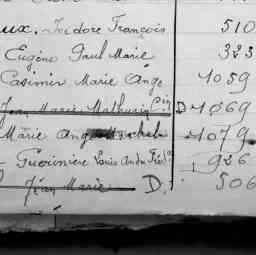 ux. Isidore François 510
Eugène Paul Marie 323
Casimir Marie Ange 1059
Jean Marie Mathurin D 1069
Marie Ange Michel 1079
Guerinière Louis 926
Jean Marie D. 506